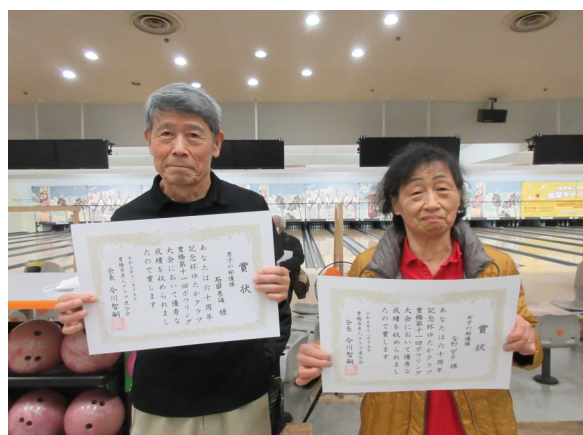 賞状
男子の部優勝
石田恵通 様
あなたは六十周年
記念杯ゆたかクラブ
豊橋第十一回ボウリング
大会において優秀な
成績を収められまし
たので賞します
豊橋市老人クラブ連合会
会長 今川智嗣
賞状
女子の部優勝
あなたは六十周年
記念杯ゆたかクラブ
豊橋第十一回ボウリング
大会において優秀な
成績を収められまし
たので賞します
豊橋市老人クラブ連合会
会長 今川智嗣